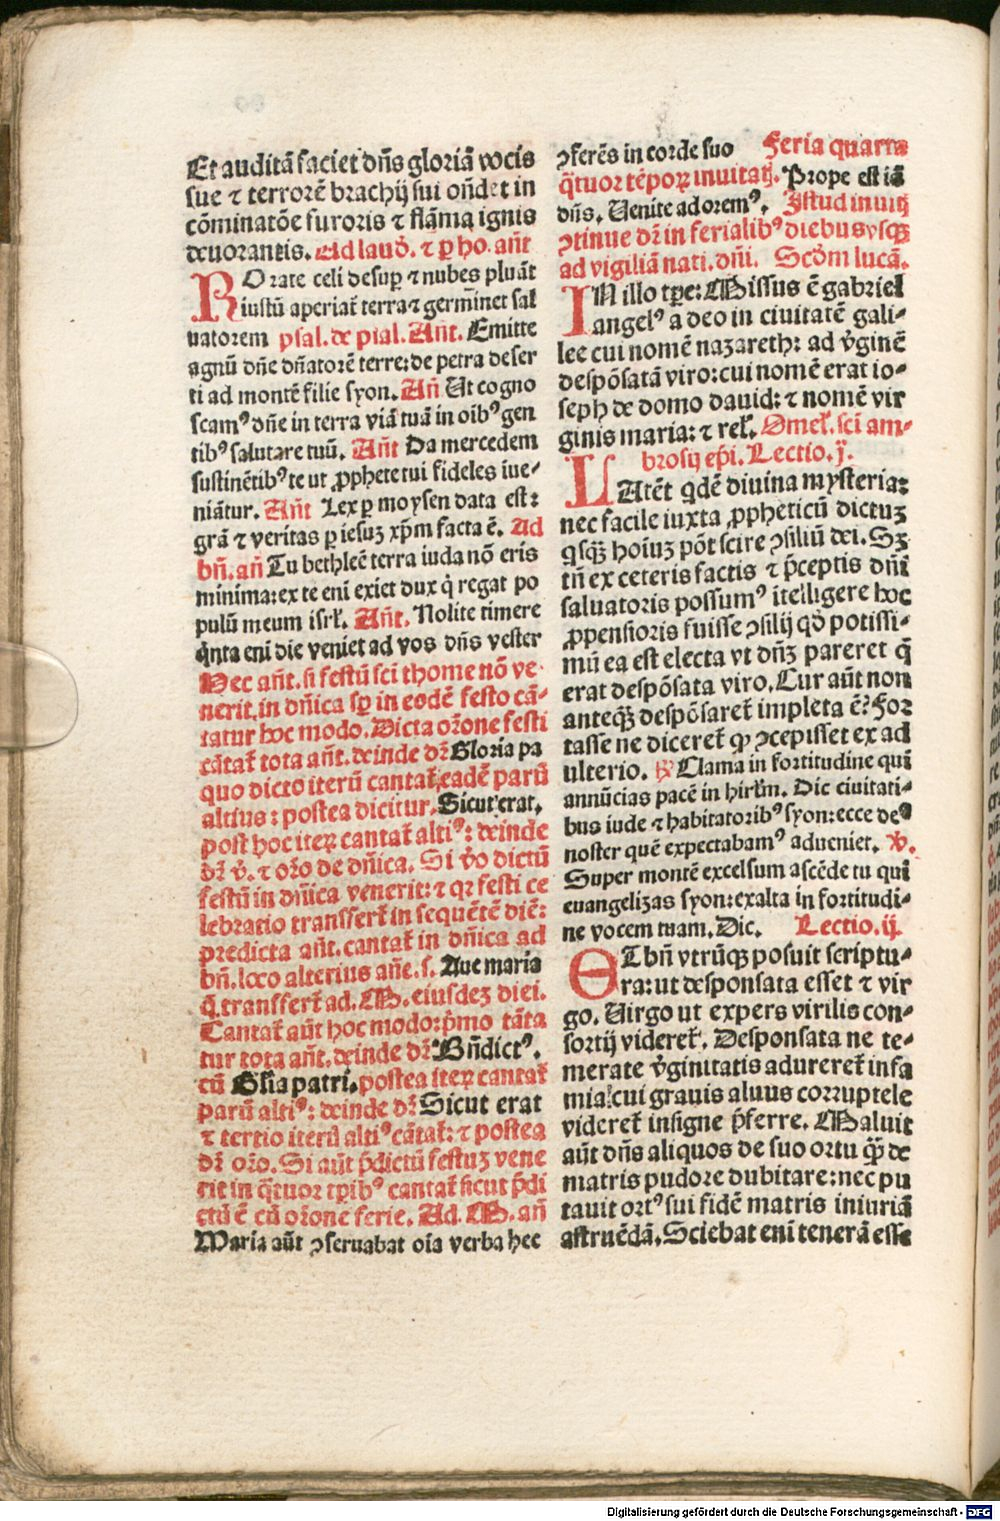 Et auditā faciet dn̄s gloriā vocis
sue ⁊ terrorē brachij sui on̄det in
cōminatōe furoris ⁊ flāma ignis
deuorantis. Ad laud̓. ⁊ ꝑ ho. an̄t
ROrate celi desuꝑ ⁊ nubes pluāt
iustū aperiat᷑ terra ⁊ germīnet sal
uatorem psal. de psal. An̄t. Emitte
agnū dn̄e dn̄atorē terre: de petra deser
ti ad montē filie syon. An̄ Ut cogno
scamꝰ dn̄e in terra viā tuā in oībꝰ gen
tibꝰ salutare tuū. An̄t Da mercedem
sustinētibꝰ te ut ꝓphete tui fideles īue⸗
niātur. An̄t Lex ꝑ moysen data est:
grā ⁊ veritas ꝑ iesuz xp̄m facta ē. Ad
bn̄. an̄ Tu bethleē terra iuda nō eris
minima: ex te eni exiet dux q̇ regat po
pulū meum isrł. An̄t. Nolite timere
q̄nta eni die veniet ad vos dn̄s vester
Hec an̄t. si festū sci thome nō ve⸗
nerit. in dn̄ica sꝑ in eodē festo cā⸗
tatur hoc modo. Dicta or̄one festi
cātat᷑ tota an̄t. deinde dr̄ Gloria pa
quo dicto iterū cantat᷑ eadē parū
altius: postea dicitur. Sicut erat.
post hoc iteꝝ cantat᷑ altiꝰ: deinde
dr̄ v̓. ⁊ or̄o de dn̄ica. Si v̓o dictū
festū in dn̄ica venerit: ⁊ qꝛ festi ce
lebratio transfert᷑ in sequētē diē:
predicta an̄t. cantat᷑ in dn̄ica ad
bn̄. loco alterius an̄e. s. Aue maria
q̄ transfert᷑ ad. M. eiusdez diei.
Cantat᷑ aūt hoc modo: pͥmo tāta
tur tota an̄t. deinde dr̄ Bn̄dictꝰ.
cū Glīa patri. postea iteꝝ cantat᷑
parū altiꝰ: deinde dr̄ Sicut erat
⁊ tertio iterū altiꝰ cātat᷑: ⁊ postea
dr̄ or̄o. Si aūt p̄dictū festuz vene
rit in q̄tuor tꝑibꝰ cantat᷑ sicut p̄di
ctū ē cū or̄one ferie. Ad. M. an̄
Maria aūt ꝯseruabat oīa verba hec
ꝯferēs in corde suo Feria quarta
q̄tuor tēpoꝝ inuitatͥ. Prope est iā
dn̄s. Uenite adoremꝰ. Istud inuitͥ
ꝯtinue dr̄ in ferialibꝰ diebus vsqꝫ
ad vigiliā nati. dn̄i. Scd̓m lucā.
IN illo tꝑe: Missus ē gabriel
angelꝰ a deo in ciuitatē gali⸗
lee cui nomē nazareth: ad v̓ginē
despōsatā viro: cui nomē erat io⸗
seph de domo dauid: ⁊ nomē vir
ginis maria: ⁊ reł. Omeł. sci am⸗
brosij ep̄i. Lectio. j.
LAtēt qͥdē diuina mysteria:
nec facile iuxta ꝓpheticū dictuz
qͥsqͣꝫ hoīuz pōt scire ꝯsiliū dei. Sꝫ
tn̄ ex ceteris factis ⁊ p̄ceptis dn̄i
saluatoris possumꝰ ītelligere hoc
ꝓpensioris fuisse ꝯsilij qd̓ potissi⸗
mū ea est electa vt dn̄ꝫ pareret q̄
erat despōsata viro. Cur aūt non
anteqͣꝫ despōsaret᷑ impleta ē? For
tasse ne diceret᷑ ꝙ ꝯcepisset ex ad
ulterio. ℟ Clama in fortitudine qui
annūcias pacē in hirłm. Dic ciuitati⸗
bus iude ⁊ habitatoribꝰ syon: ecce deꝰ
noster quē expectabamꝰ adueniet. V̓.
Super montē excelsum ascēde tu qui
euangelizas syon: exalta in fortitudi⸗
ne vocem tuam. Dic. Lectio. ij.
ET bn̄ vtrūqꝫ posuit scriptu⸗
ra: ut desponsata esset ⁊ vir
go. Uirgo ut expers virilis con⸗
sortij videret᷑. Desponsata ne te⸗
merate v̓ginitatis adureret᷑ infa
mia: cui grauis aluus corruptele
videret᷑ insigne p̄ferre. Maluit
aūt dn̄s aliquos de suo ortu qͣꝫ de
matris pudore dubitare: nec pu
tauit ortꝰ sui fidē matris iniuriā
astruēdā. Sciebat eni tenerā esse
Digitalisierung gefördert durch die Deutsche Forschungsgemeinschaft - DFG